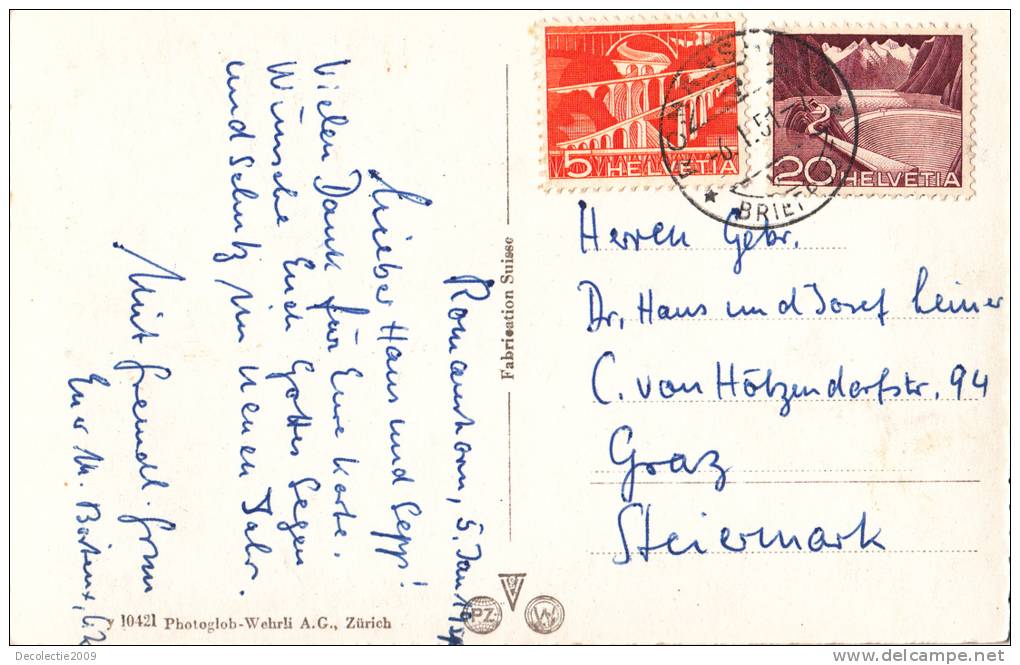 Romanshorn, 5. Jan 195
Lieber Hans und Sepp!
Vielen Dank für Eure Karte.
Wünsche Euch Gottes Segen
und Schutz im neuen Jahr.
Mit freundl. Gruss
Euer M.
Fabrication Suisse
5 HELVETIA
20 HELVETIA
-6.1.51
BRIEF
Herren Gebr.
Dr. Hans und Josef Leiner
C. von Hötzendorfstr. 94
Graz
Steiermark
PZ
W
y 10421 Photoglob-Wehrli A.G., Zürich
Decolectie2009
www.delcampe.net